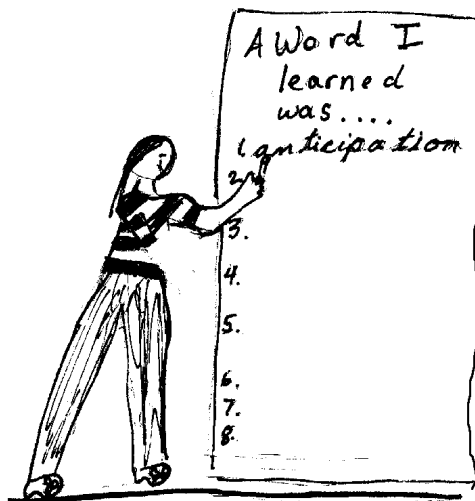 A Word I
learned
was....
1 anticipation
2.
3.
4.
5.
6.
7.
8.